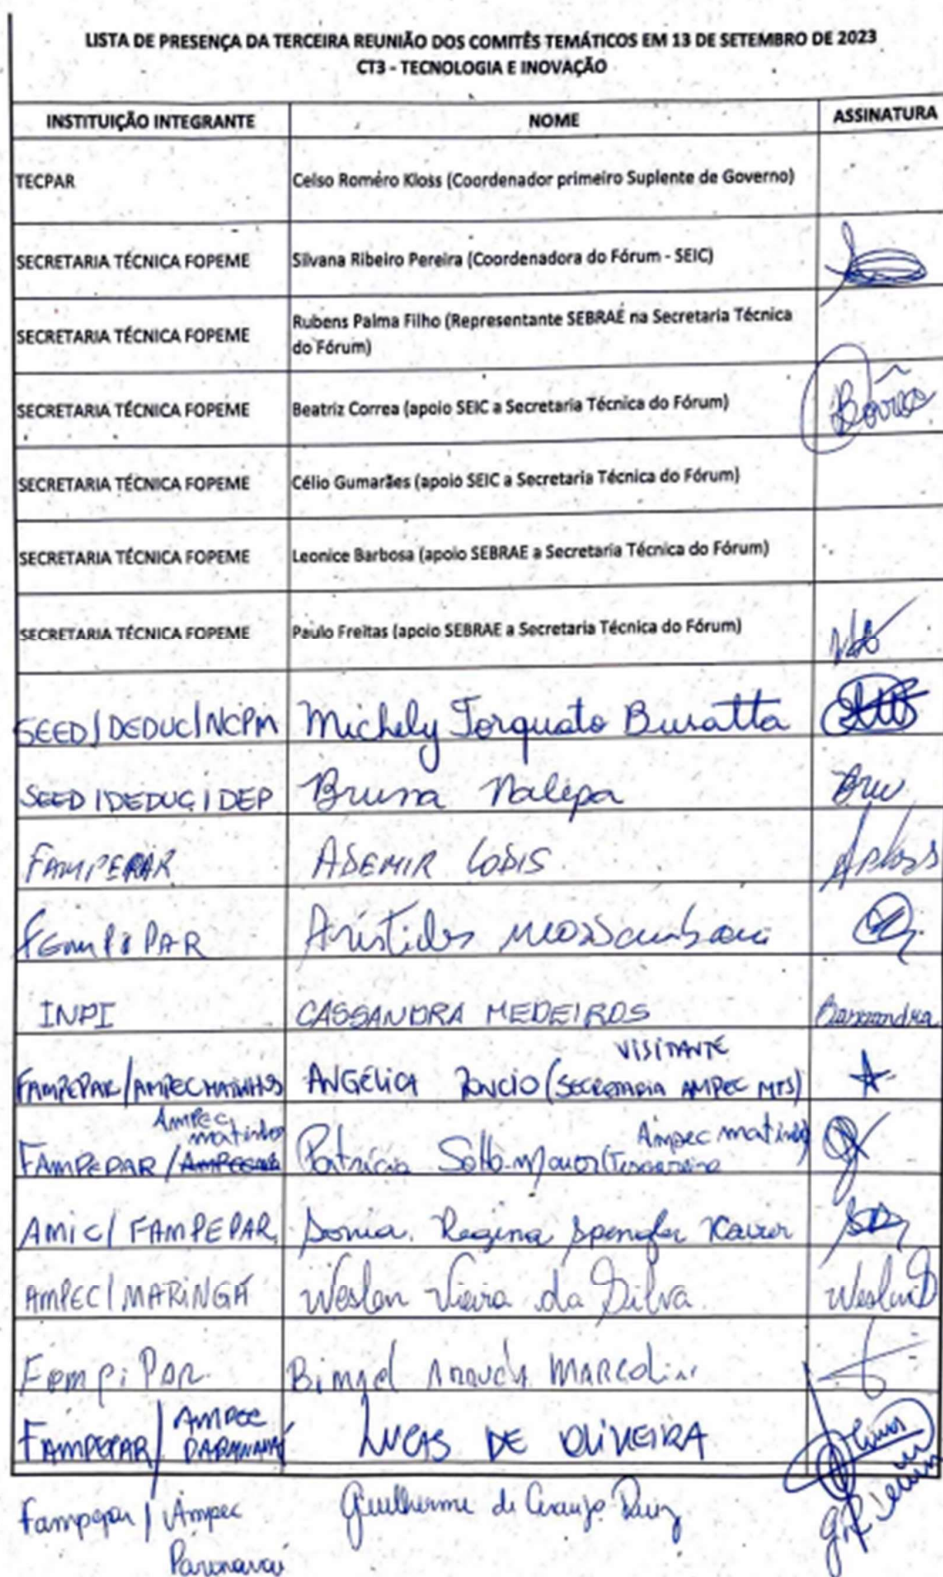 LISTA DE PRESENÇA DA TERCEIRA REUNIÃO DOS COMITÊS TEMÁTICOS EM 13 DE SETEMBRO DE 2023
CT3 - TECNOLOGIA E INOVAÇÃO
INSTITUIÇÃO INTEGRANTE NOME ASSINATURA
TECPAR Celso Roméro Kloss (Coordenador primeiro Suplente de Governo)
SECRETARIA TÉCNICA FOPEME Silvana Ribeiro Pereira (Coordenadora do Fórum - SEIC)
SECRETARIA TÉCNICA FOPEME Rubens Palma Filho (Representante SEBRAE na Secretaria Técnica
do Fórum)
SECRETARIA TÉCNICA FOPEME Beatriz Correa (apoio SEIC a Secretaria Técnica do Fórum)
SECRETARIA TÉCNICA FOPEME Célio Gumarães (apoio SEIC a Secretaria Técnica do Fórum)
SECRETARIA TÉCNICA FOPEME Leonice Barbosa (apoio SEBRAE a Secretaria Técnica do Fórum)
SECRETARIA TÉCNICA FOPEME Paulo Freitas (apoio SEBRAE a Secretaria Técnica do Fórum)
SEED/DEDUC/NCPM Michely Torquato Busatta
SEED/DEDUC/DEP Bruna Nalepa Bru
FAMPEPAR ADEMIR
FEMPIPAR Aristides
INPI CASSANDRA MEDEIROS Cassandra
VISITANTE
FAMPEPAR/AMPEC MATINHOS ANGÉLICA (SECRETARIA AMPEC MTS)
Ampec matinhos Ampec matinhos
FAMPEPAR / Patrícia Sotto-maior (Tesoureira
AMIC/FAMPEPAR Sonia Regina Spengler Xavier
AMPEC/MARINGÁ Weslen Vieira da Silva
FempiPar Marcolin
AMPEC
FAMPEPAR/ PARANAVAÍ LUCAS DE OLIVEIRA
Fampepar / Ampec Guilherme de Araujo Ruiz
Paranavaí